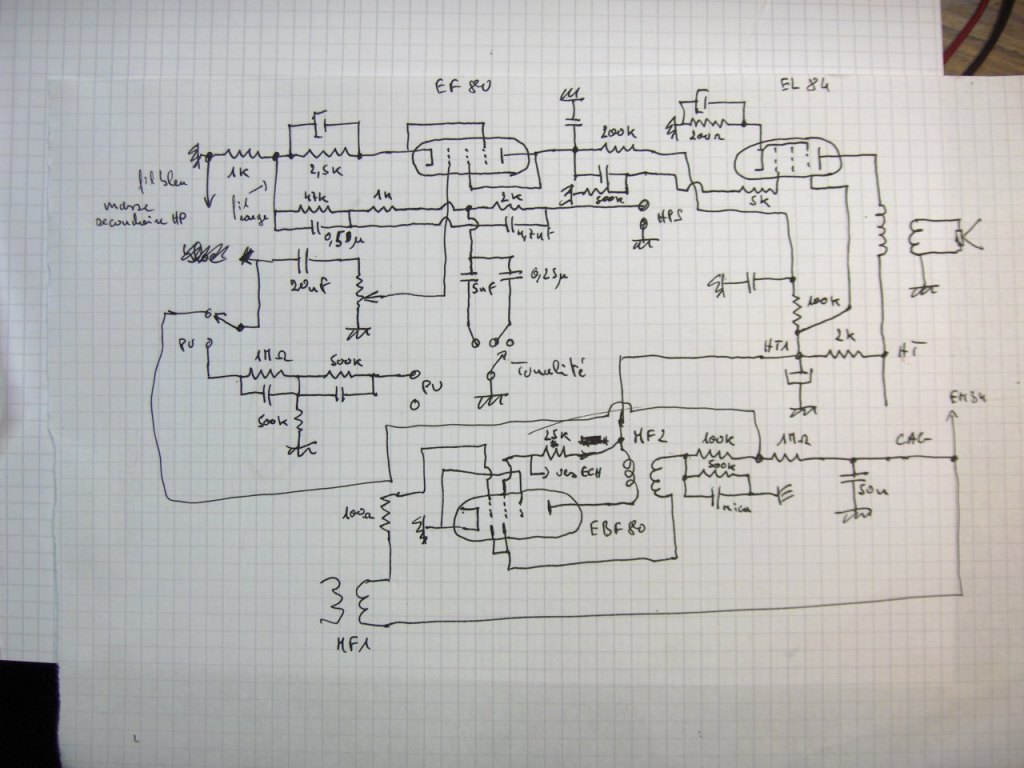 EF 80
EL 84
200k
200Ω
1K
2,5K
fil bleu
masse
secondaire HP
fil
rouge
47K
1K
2K
500k
5K
HPS
0,50µ
4,7nF
20nF
5nF
0,25µ
100k
PU
1MΩ
500k
HT1
2K
HT
Tonalité
PU
500k
EM34
25K
MF2
100k
1MΩ
CAG
vers ECH
500k
50n
mica
100Ω
EBF 80
MF1